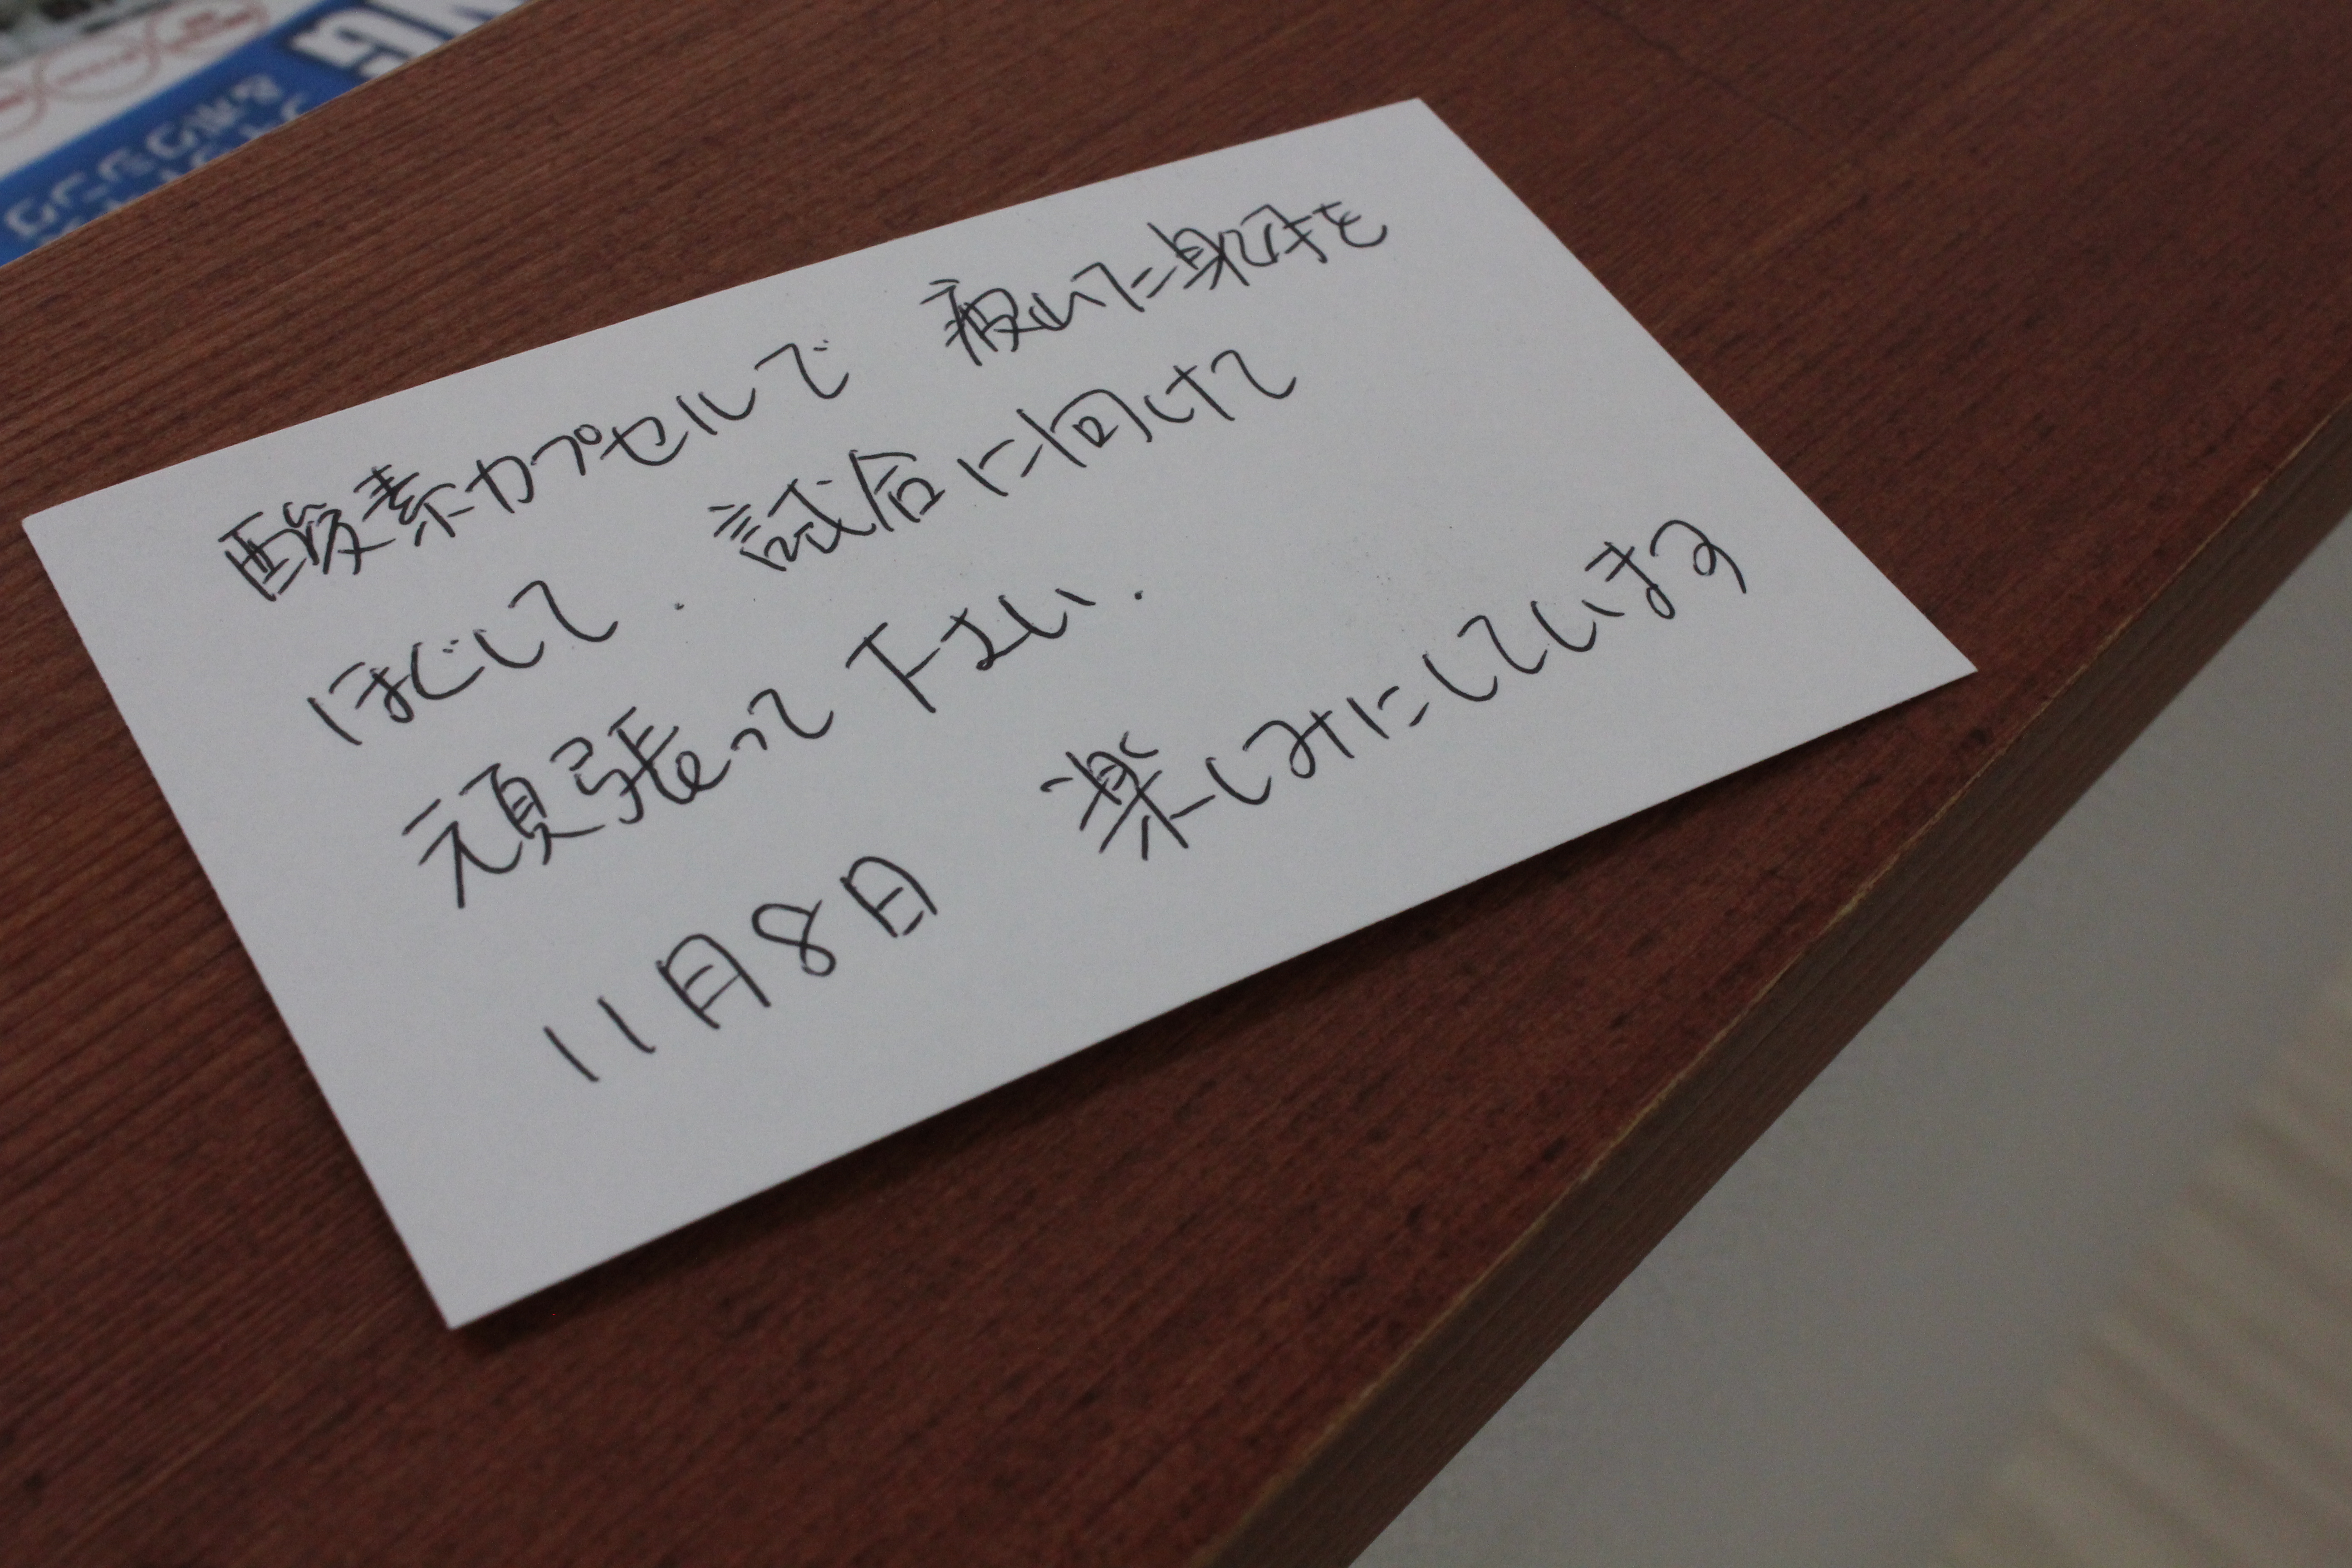 酸素カプセルで 疲れた身体を
ほぐして. 試合に向けて
頑張って下さい.
11月8日 楽しみにしています